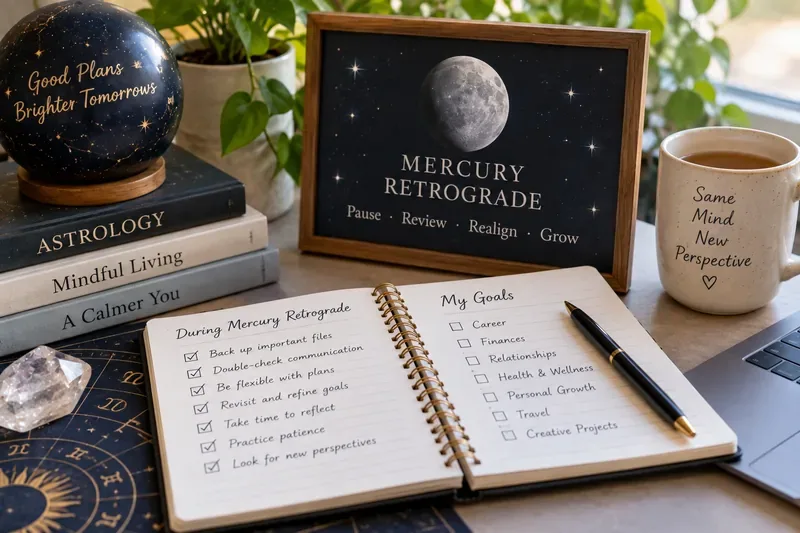 Good Plans
Brighter Tomorrows
ASTROLOGY
Mindful Living
A Calmer You
MERCURY
RETROGRADE
Pause · Review · Realign · Grow
Same
Mind
New
Perspective
During Mercury Retrograde
Back up important files
Double-check communication
Be flexible with plans
Revisit and refine goals
Take time to reflect
Practice patience
Look for new perspectives
My Goals
Career
Finances
Relationships
Health & Wellness
Personal Growth
Travel
Creative Projects